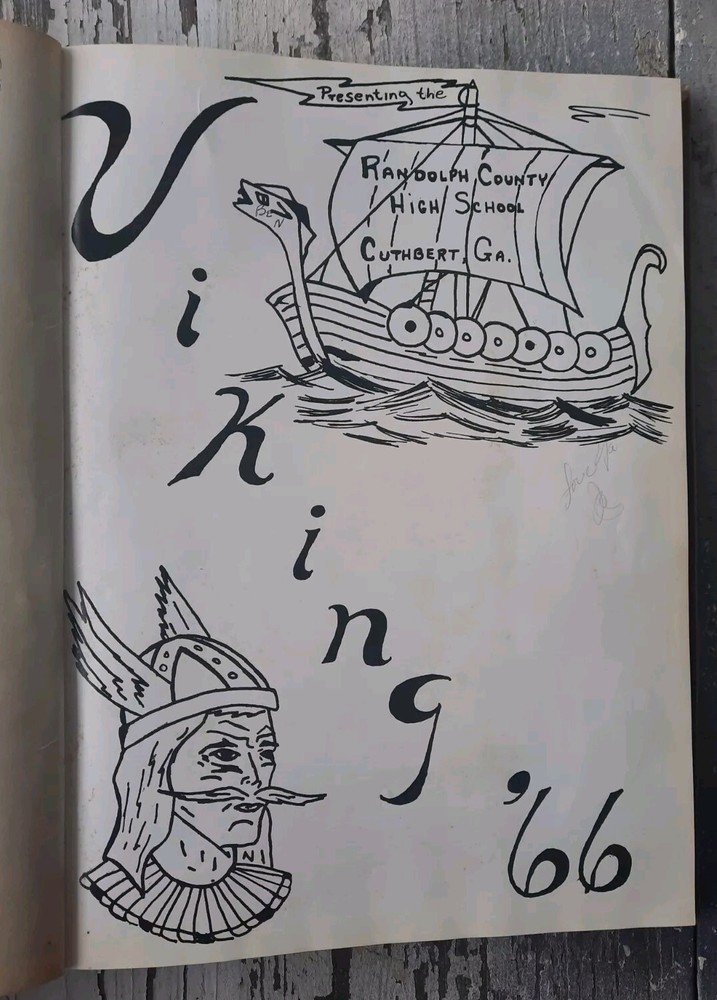 Presenting the
RANDOLPH COUNTY
HIGH SCHOOL
CUTHBERT, GA.
BEN
Viking
'66